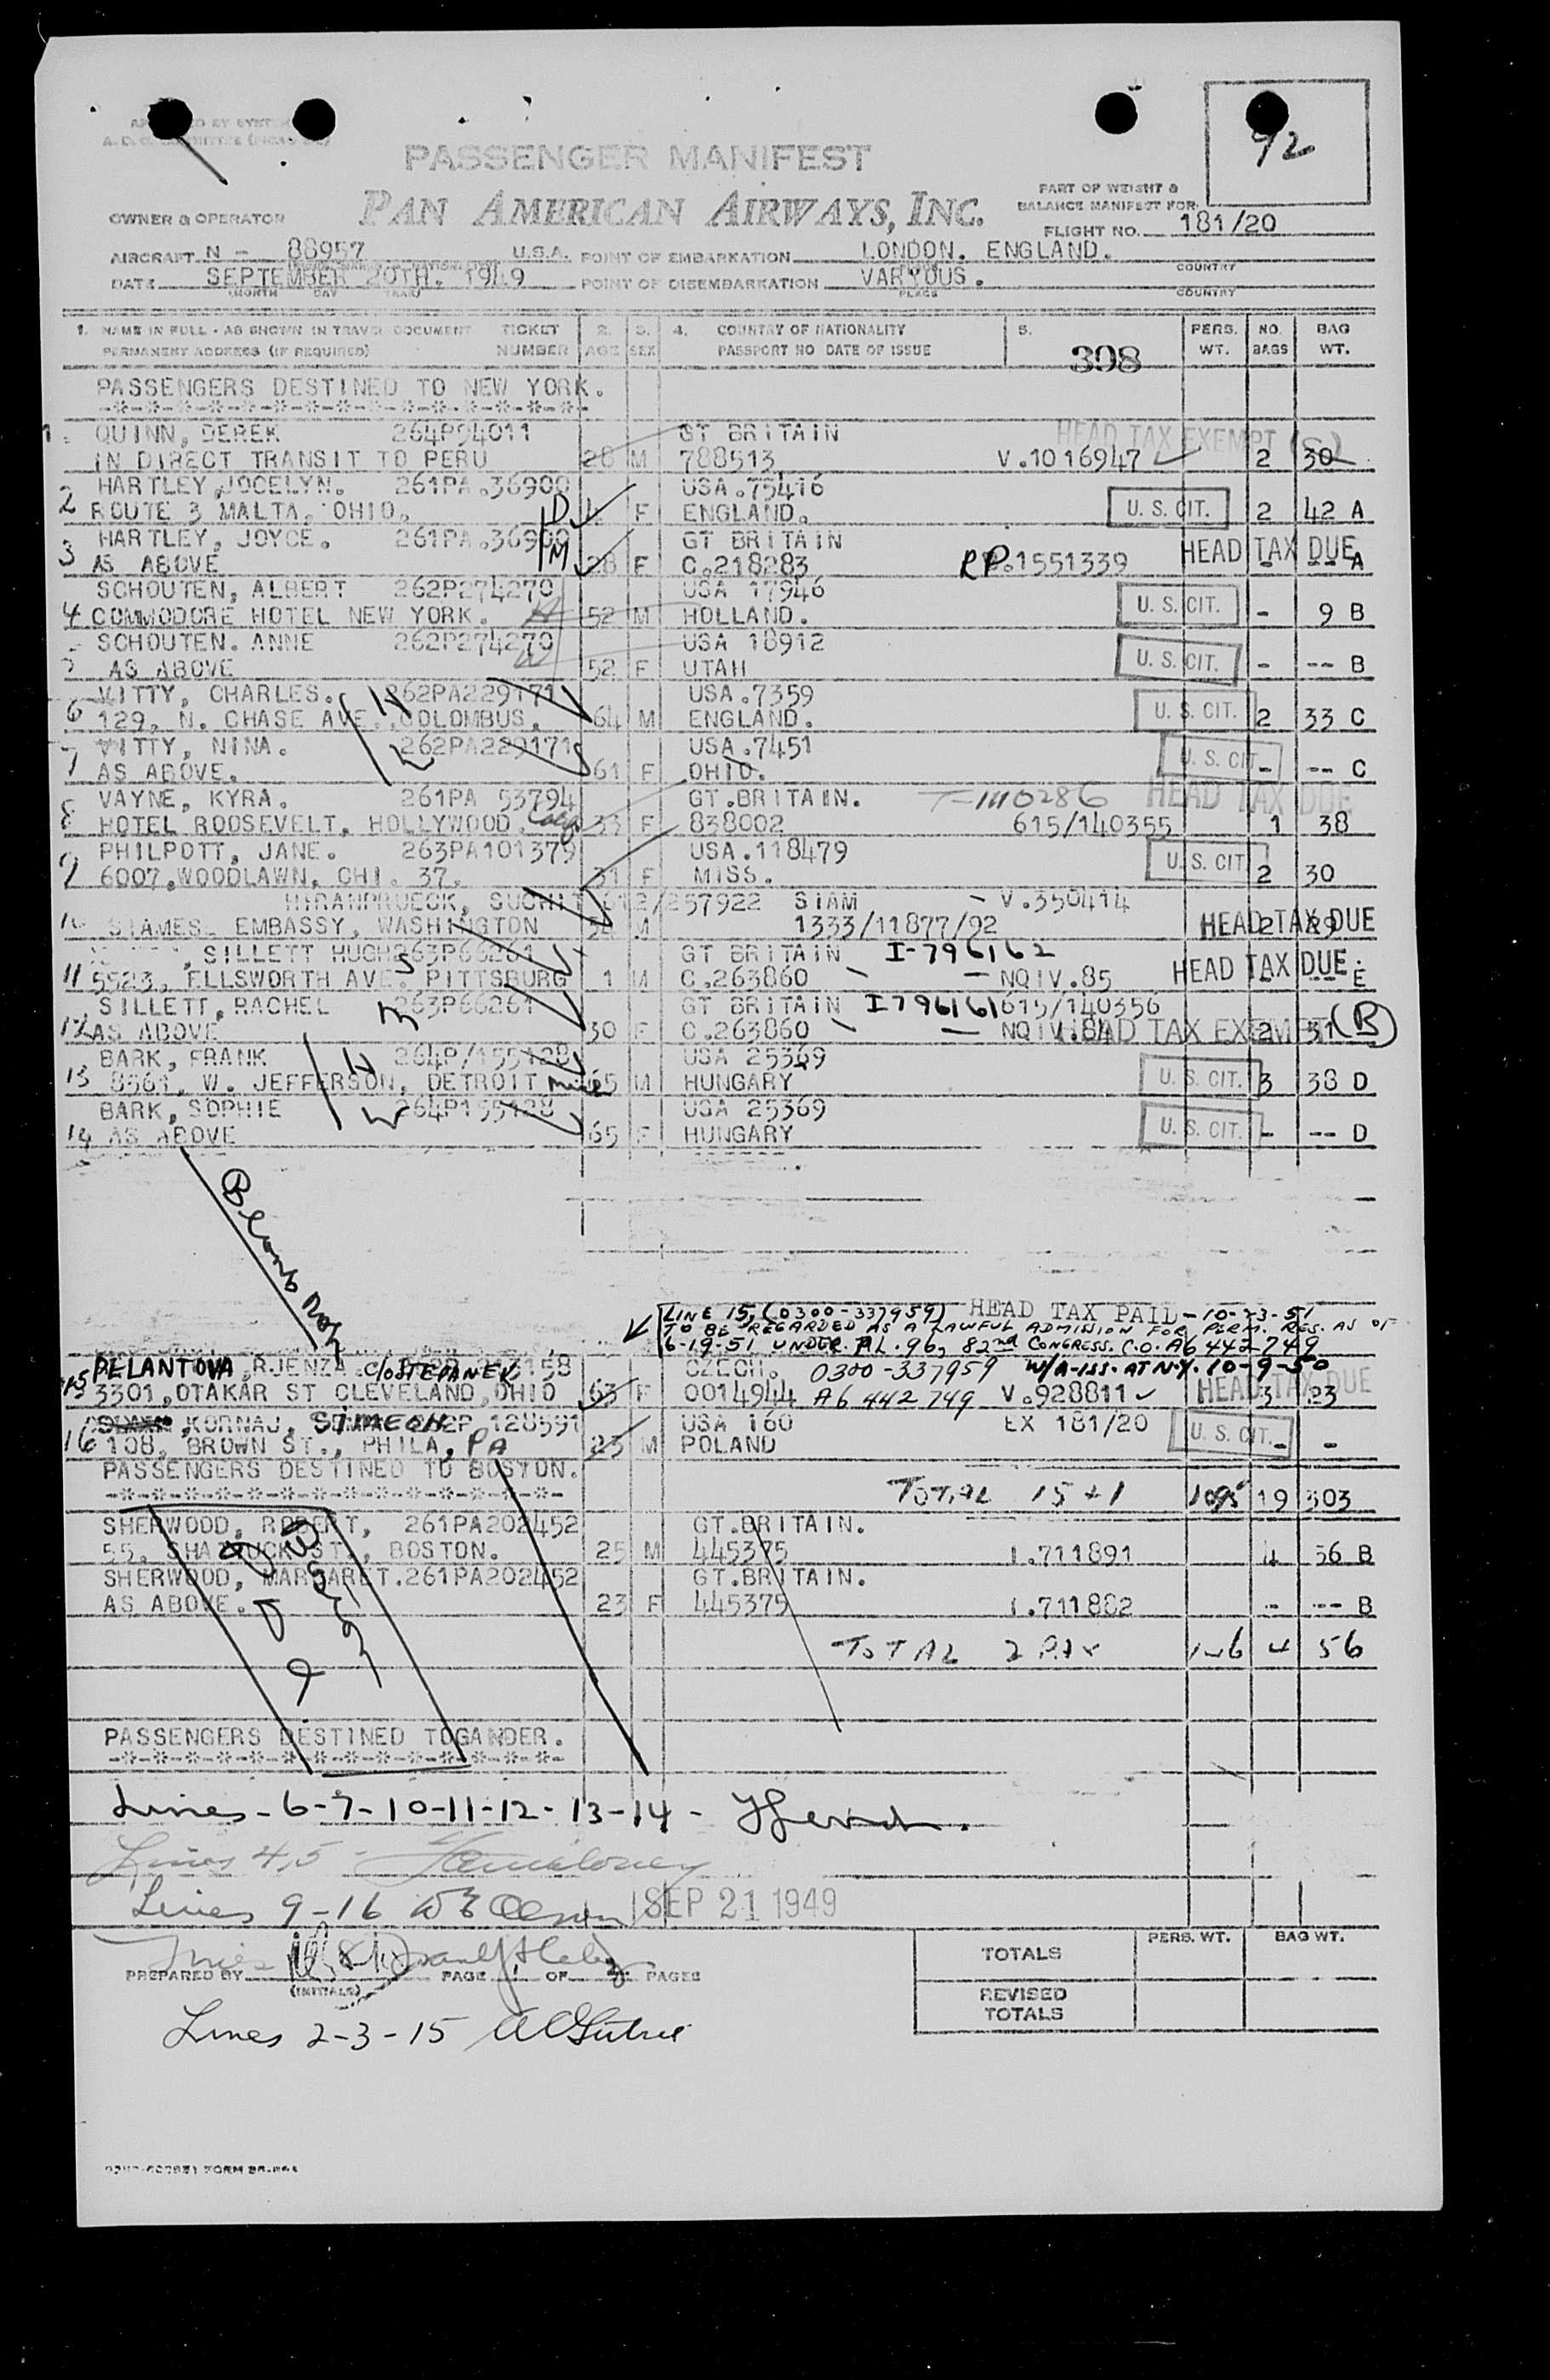 92
PASSENGER MANIFEST
PAN AMERICAN AIRWAYS, INC.
PART OF WEIGHT &
BALANCE MANIFEST FOR
OWNER & OPERATOR
FLIGHT NO. 181/20
AIRCRAFT N - 88957 U.S.A. POINT OF EMBARKATION LONDON. ENGLAND.
COUNTRY
DATE SEPTEMBER 20TH. 1949 POINT OF DISEMBARKATION VARYOUS.
(MONTH DAY YEAR) PLACE COUNTRY
1. NAME IN FULL - AS SHOWN IN TRAVEL DOCUMENT TICKET 2. 3. 4. COUNTRY OF NATIONALITY 5. PERS. NO. BAG
PERMANENT ADDRESS (IF REQUIRED) NUMBER AGE SEX PASSPORT NO DATE OF ISSUE 308 WT. BAGS WT.
PASSENGERS DESTINED TO NEW YORK.
-*-*-*-*-*-*-*-*-*-*-*-*-*-*-*-
1. QUINN, DEREK 264P94011 GT BRITAIN HEAD TAX EXEMPT
IN DIRECT TRANSIT TO PERU 28 M 788513 V.1016947 2 30
HARTLEY, JOCELYN. 261PA.36900 USA.75416
2 ROUTE 3 MALTA. OHIO. D F ENGLAND. U. S. CIT. 2 42 A
HARTLEY, JOYCE. 261PA.36900 GT BRITAIN HEAD TAX DUE
3 AS ABOVE M 28 F C.218283 RP.1551339 - -- A
SCHOUTEN, ALBERT 262P274270 USA 17946
4 COMMODORE HOTEL NEW YORK. H 52 M HOLLAND. U. S. CIT. - 9 B
SCHOUTEN. ANNE 262P274270 USA 18912
5 AS ABOVE W 52 F UTAH U. S. CIT. - -- B
VITTY, CHARLES. H 262PA229171 USA.7359
6 129. N. CHASE AVE. COLOMBUS. 64 M ENGLAND. U. S. CIT. 2 33 C
VITTY, NINA. 262PA229171 USA.7451
7 AS ABOVE. W 61 F OHIO. U. S. CIT. - -- C
VAYNE, KYRA. 261PA 53794 GT.BRITAIN. T-1110286 HEAD TAX DUE
8 HOTEL ROOSEVELT, HOLLYWOOD. Calif 33 F 838002 615/140355 1 38
PHILPOTT, JANE. 263PA101379 USA.118479
9 6007.WOODLAWN. CHI. 37. 31 F MISS. U. S. CIT 2 30
HIRANPRUECK, SUCHIT 612/257922 SIAM - V.350414
10 SIAMES. EMBASSY, WASHINGTON M 1333/11877/92 HEAD TAX DUE 2 29
, SILLETT HUGH 263P66261 GT BRITAIN I-796162
11 5523. ELLSWORTH AVE. S PITTSBURG 1 M C.263860 - NQIV.85 HEAD TAX DUE - -- E
SILLETT, RACHEL 263P66261 GT BRITAIN I796161 615/140356
12 AS ABOVE M 30 F C.263860 - NQIV.84 HEAD TAX EXEMPT (B) 2 31
BARK, FRANK H 264P/155128 USA 25369
13 8561. W. JEFFERSON, DETROIT Mich 65 M HUNGARY U. S. CIT. 3 38 D
BARK, SOPHIE W 264P155128 USA 25369
14 AS ABOVE 65 F HUNGARY U. S. CIT. - -- D
LINE 15, (0300-337959) HEAD TAX PAID - 10-23-51
TO BE REGARDED AS A LAWFUL ADMISSION FOR PERM. RES. AS OF
6-19-51 UNDER P.L. 96, 82nd CONGRESS. C.O. A6 442 749
PELANTOVA, RJENZA. C/O STEPANEK 158 CZECH. 0300-337959 W/A-ISS. AT N.Y. 10-9-50
15 3301.OTAKAR ST CLEVELAND OHIO 63 F 0014944 A6 442 749 V.928811 HEAD TAX DUE 3 23
KORNAJ, SIMECH 128591 USA 160 EX 181/20
16 108, BROWN ST., PHILA, PA 23 M POLAND U. S. CIT. - -
PASSENGERS DESTINED TO BOSTON.
-*-*-*-*-*-*-*-*-*-*-*-*-*-*-
TOTAL 15 + 1 1095 19 303
SHERWOOD, ROBERT, 261PA202452 GT.BRITAIN.
55. SHATTUCK ST., BOSTON. 25 M 445375 I.711891 4 56 B
SHERWOOD, MARGARET.261PA202452 GT.BRITAIN.
AS ABOVE. 23 F 445375 I.711882 - -- B
TOTAL 2 PAX 4 56
PASSENGERS DESTINED TOGANDER.
-*-*-*-*-*-*-*-*-*-*-*-*-*-*-
Lines - 6-7-10-11-12-13-14 -
Lines 4,5 -
Lines 9-16 SEP 21 1949
PREPARED BY PAGE 1 OF 2 PAGES
(INITIALS)
Lines 2-3-15
PERS. WT. BAG WT.
TOTALS
REVISED
TOTALS